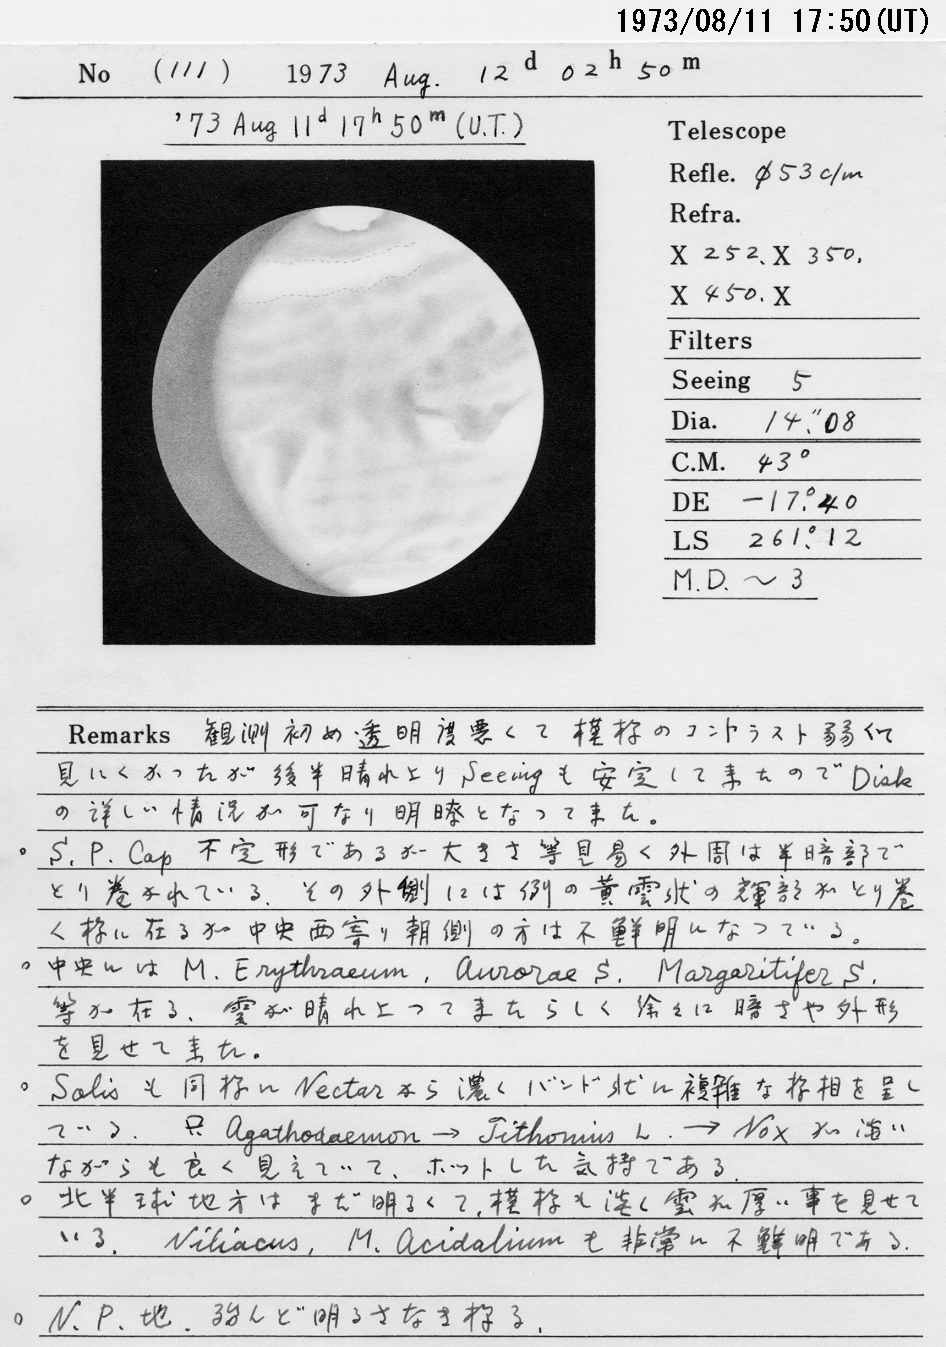 1973/08/11 17:50(UT)
No (111) 1973 Aug. 12 d 02 h 50 m
'73 Aug 11d 17h 50m (U.T.)
Telescope
Refle. φ53 c/m
Refra.
X 252. X 350.
X 450. X
Filters
Seeing 5
Dia. 14."08
C.M. 43°
DE -17.°40
LS 261.°12
M.D. ~ 3
Remarks 観測初め透明度悪くて模様のコントラスト弱くて
見にくかったが後半晴れ上りSeeingも安定して来たのでDisk
の詳しい情況が可なり明瞭となって来た。
○ S. P. Cap 不定形であるが大きさ等見易く外周は半暗部で
とり巻かれている. その外側には例の黄雲状の輝部がとり巻
く様に在るが中央西寄り朝側の方は不鮮明になっている。
○ 中央には M. Erythraeum, Aurorae S. Margaritifer S.
等が在る. 雲が晴れ上って来たらしく徐々に暗さや外形
を見せて来た。
○ Solisも同様にNectarから濃くバンド状に複雑な様相を呈し
ている. 只 Agathodaemon → Tithonius L. → Nox が淡い
ながらも良く見えていて、ホットした気持である.
○ 北半球地方はまだ明るくて, 模様も淡く雲が厚い事を見せて
いる. Niliacus, M. Acidaliumも非常に不鮮明である.
○ N. P. 地. 殆んど明るさなき様る.